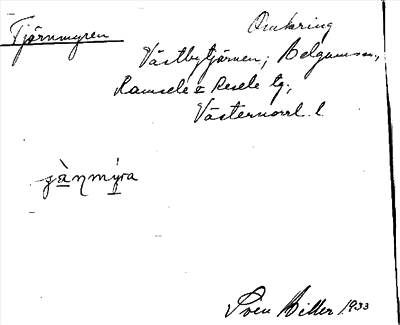 Tjärnmyren
Omkring
Västbytjärnen; Belgumsm.,
Ramsele o Resele tg.,
Västernorrl. l.
Sven Biller 1933